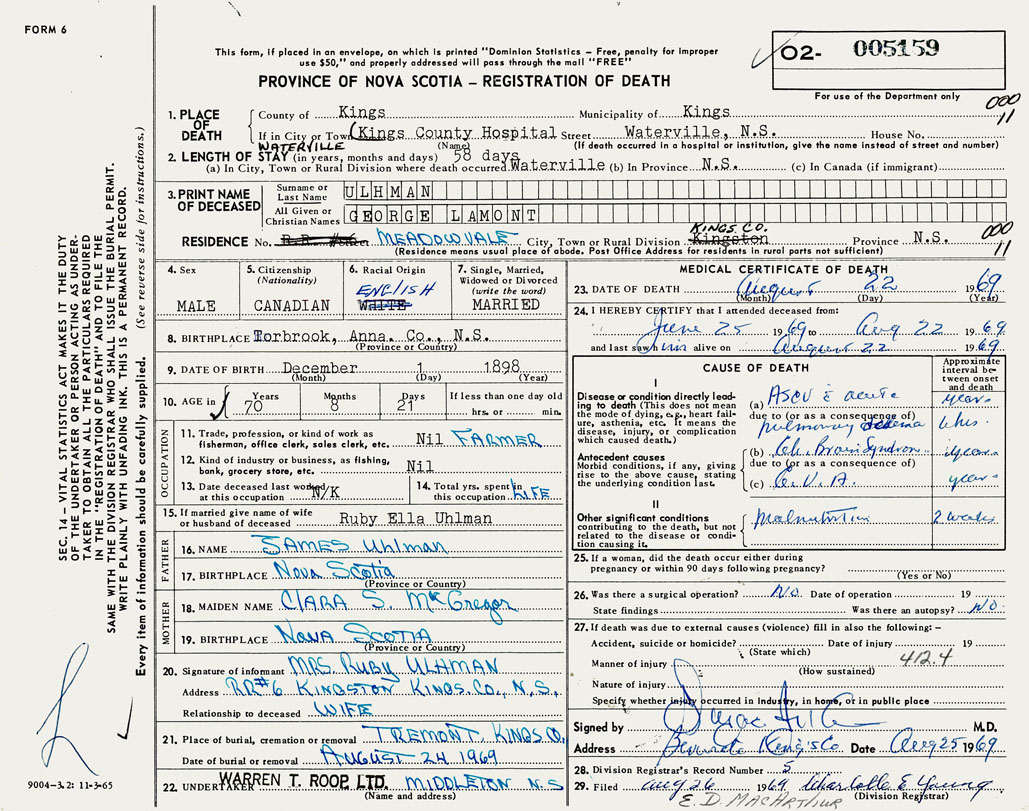 FORM 6
This form, if placed in an envelope, on which is printed "Dominion Statistics – Free, penalty for improper
use $50," and properly addressed will pass through the mail "FREE"
PROVINCE OF NOVA SCOTIA – REGISTRATION OF DEATH
O2- 005159
For use of the Department only
000
11
1. PLACE OF DEATH
County of Kings Municipality of Kings
If in City or Town (Kings County Hospital Street Waterville, N.S. House No.
WATERVILLE (Name) (If death occurred in a hospital or institution, give the name instead of street and number)
2. LENGTH OF STAY (in years, months and days) 58 days
(a) In City, Town or Rural Division where death occurred Waterville (b) In Province N.S. (c) In Canada (if immigrant)
3. PRINT NAME OF DECEASED
Surname or Last Name ULHMAN
All Given or Christian Names GEORGE LAMONT
KINGS CO.
RESIDENCE No. R.R. #6 MEADOWVALE City, Town or Rural Division Kingston Province N.S.
000
11
(Residence means usual place of abode. Post Office Address for residents in rural parts not sufficient)
4. Sex
MALE
5. Citizenship
(Nationality)
CANADIAN
6. Racial Origin
ENGLISH
WHITE
7. Single, Married,
Widowed or Divorced
(write the word)
MARRIED
8. BIRTHPLACE Torbrook, Anna. Co., N.S.
(Province or Country)
9. DATE OF BIRTH December 1 1898
(Month) (Day) (Year)
10. AGE in Years Months Days If less than one day old
70 8 21 hrs. or min.
OCCUPATION
11. Trade, profession, or kind of work as
fisherman, office clerk, sales clerk, etc. Nil FARMER
12. Kind of industry or business, as fishing,
bank, grocery store, etc. Nil
13. Date deceased last worked
at this occupation N/K
14. Total yrs. spent in
this occupation LIFE
15. If married give name of wife
or husband of deceased Ruby Ella Uhlman
FATHER
16. NAME JAMES Uhlman
17. BIRTHPLACE Nova Scotia
(Province or Country)
MOTHER
18. MAIDEN NAME CLARA S. McGregor
19. BIRTHPLACE NOVA SCOTIA
(Province or Country)
20. Signature of informant MRS. RUBY ULHMAN
Address RR#6 KINGSTON KINGS. CO., N.S.,
Relationship to deceased WIFE
21. Place of burial, cremation or removal TREMONT, KINGS. CO,
Date of burial or removal AUGUST 24 1969
22. UNDERTAKER WARREN T. ROOP LTD. MIDDLETON N.S
(Name and address)
MEDICAL CERTIFICATE OF DEATH
23. DATE OF DEATH August 22 1969
(Month) (Day) (Year)
24. I HEREBY CERTIFY that I attended deceased from:
June 25 1969 to Aug 22 1969
and last saw him alive on August 22 1969
CAUSE OF DEATH
Approximate interval between onset and death
I
Disease or condition directly leading to death (This does not mean the mode of dying, e.g., heart failure, asthenia, etc. It means the disease, injury, or complication which caused death.)
(a) ASCVD c̄ acute years
due to (or as a consequence of)
pulmonary edema
Antecedent causes
Morbid conditions, if any, giving rise to the above cause, stating the underlying condition last.
(b) Ch. Brain Syndrom years
due to (or as a consequence of)
(c) C.V.A. years
II
Other significant conditions
contributing to the death, but not related to the disease or condition causing it.
Malnutrition 2 weeks
25. If a woman, did the death occur either during
pregnancy or within 90 days following pregnancy?
(Yes or No)
26. Was there a surgical operation? NO. Date of operation 19
State findings Was there an autopsy? NO.
27. If death was due to external causes (violence) fill in also the following: –
Accident, suicide or homicide? Date of injury 19
(State which) 412.4
Manner of injury
(How sustained)
Nature of injury
Specify whether injury occurred in industry, in home, or in public place
Signed by M.D.
Address Kings Co. Date Aug 25 1969
28. Division Registrar's Record Number 5
29. Filed aug 26 1969 Charlotte E Young
(Division Registrar)
E. D. MACARTHUR
SEC. 14 – VITAL STATISTICS ACT MAKES IT THE DUTY
OF THE UNDERTAKER OR PERSON ACTING AS UNDER-
TAKER TO OBTAIN ALL THE PARTICULARS REQUIRED
IN THE "REGISTRATION OF DEATH" AND TO FILE THE
SAME WITH THE DIVISION REGISTRAR WHO SHALL ISSUE THE BURIAL PERMIT.
WRITE PLAINLY WITH UNFADING INK. THIS IS A PERMANENT RECORD.
Every item of information should be carefully supplied. (See reverse side for instructions.)
9004-3.2: 11-3-65